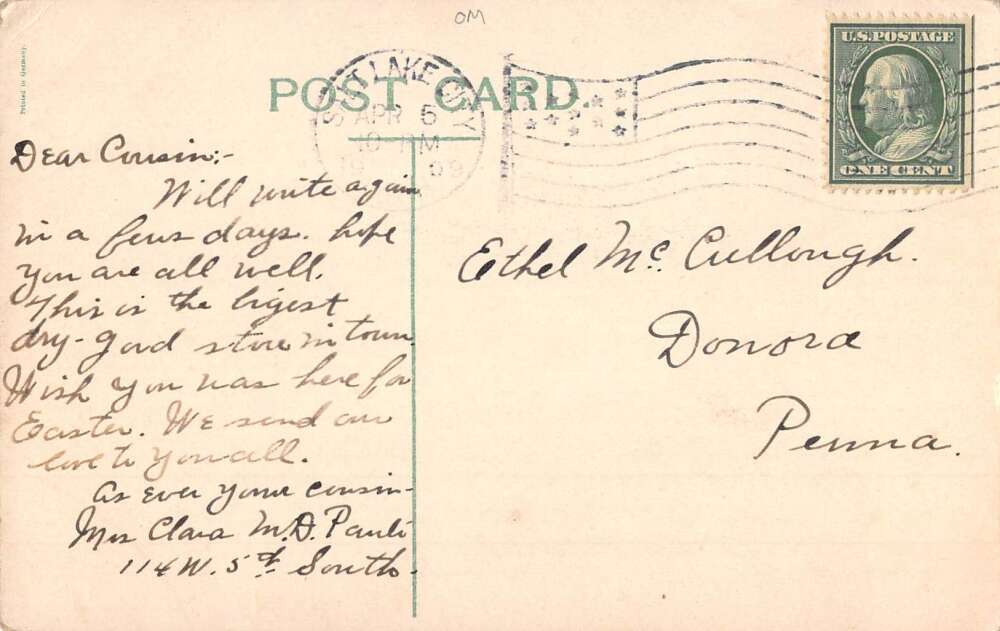 OM
U.S. POSTAGE
ONE CENT
Printed in Germany.
POST CARD.
SALT LAKE CITY
APR 5
10 PM
1909
Dear Cousin:-
Will write again
in a few days. hope
you are all well.
This is the bigest
dry-good store in town
Wish you was here for
Easter. We send our
love to you all.
As ever your cousin-
Mrs Clara M.D. Pauli
114 W. 5th South.
Ethel Mc Cullough.
Donora
Penna.